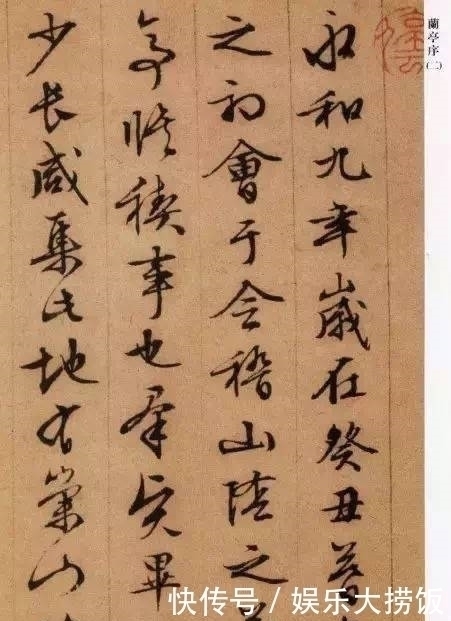 蘭亭序(二)
永和九年歲在癸丑暮
之初會于會稽山陰之
亭脩禊事也羣賢畢
少長咸集此地有崇山
快传号 / 娱乐大捞饭